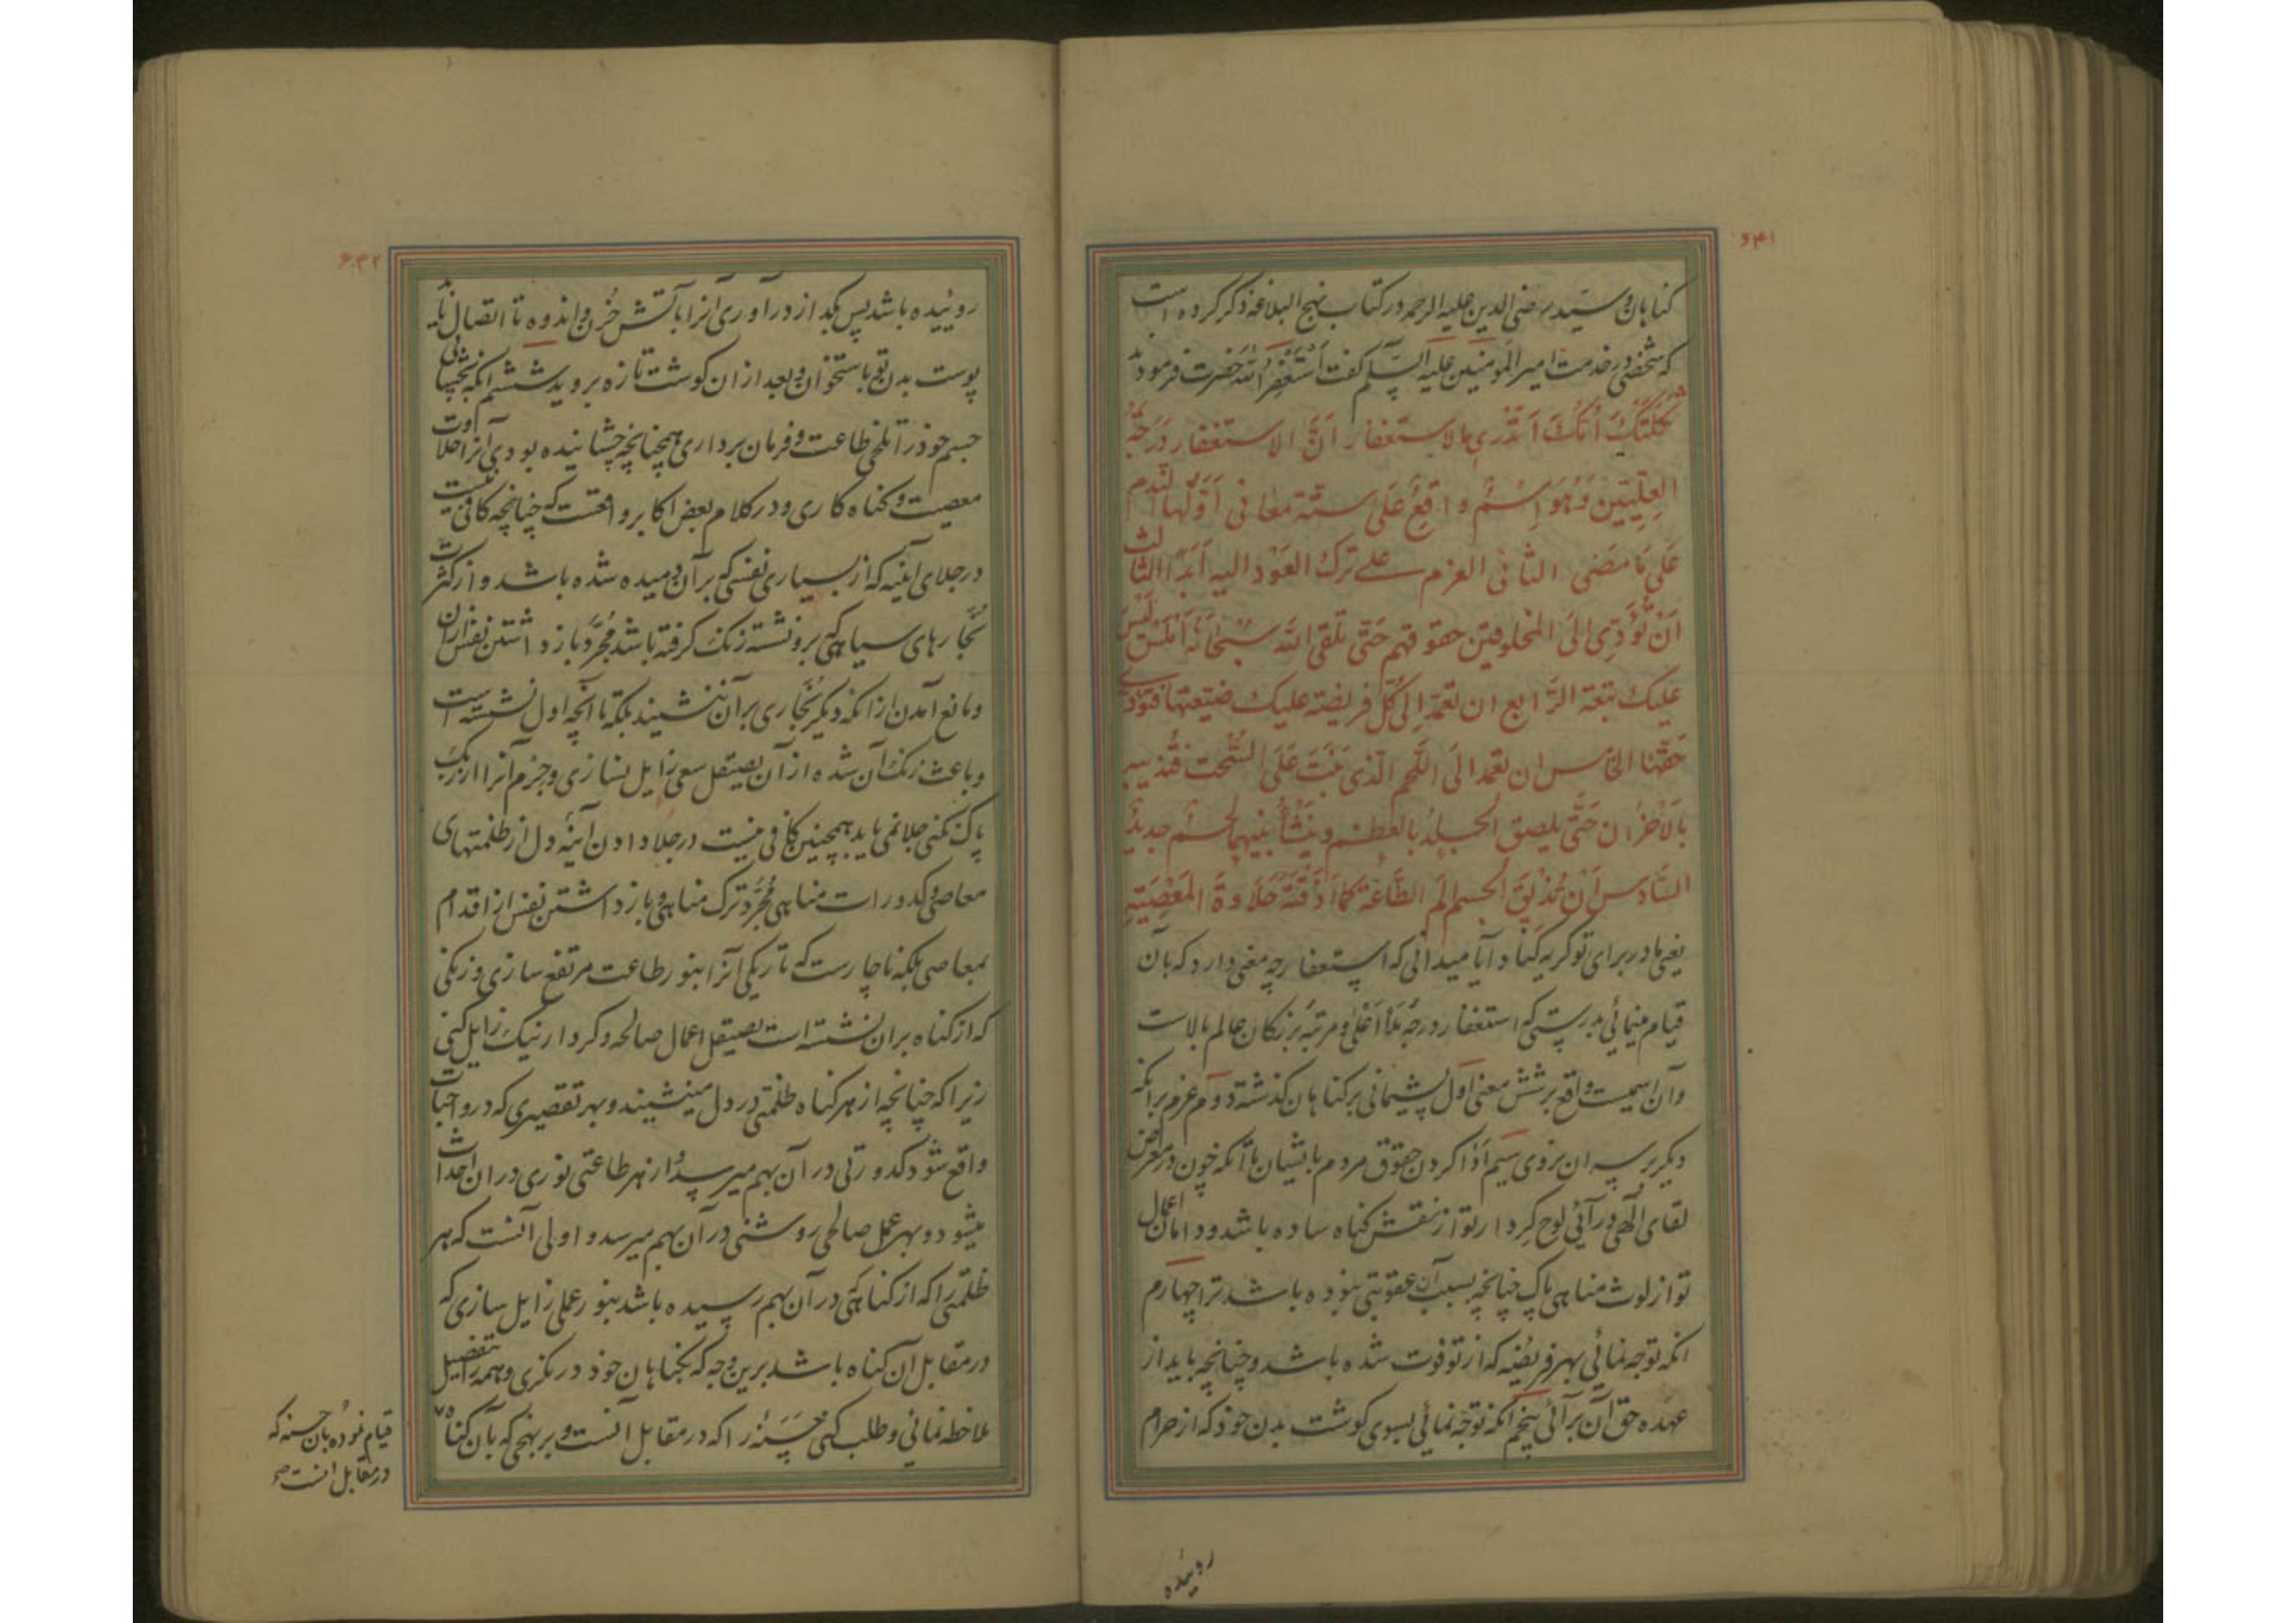 ۶۴۱
کناهان و سید رضی الدین علیه الرحمه در کتاب نهج البلاغه ذکر کرده است
که شخصی در خدمت امیر المؤمنین علیه السلام کفت اَسْتَغْفِرُ اللهَ حضرت فرمودند
ثَکَلَتْکَ اُمُّکَ اَتَدْری ما الاستغفار اَنَّ الاستغفار دَرَجَةُ
العِلِّیّینَ وَهُوَ اِسْمٌ واقِعٌ عَلی ستّة معانی اَوَّلُها النَّدم
عَلی مَا مَضی الثانی العزم علی ترک العَوْد الیه اَبَداً الثالث
اَنْ تُؤَدِّیَ اِلیَ المخلوقین حقوقهم حَتّی تلقی الله سبحانَهُ اَمْلَسَ لَیْسَ
علیک تبعة الرّابع ان تعمد اِلی کُلِّ فریضة علیک ضیّعتها فتؤدی
حَقَّها الخامس ان تعمد الَی اللّحم الّذی نَبَتَ عَلَی السُّحْت فتُذیبه
بالاَحْزان حَتّی یلصق الجِلدُ بالعظم و یَنْشَأُ بینهما لحْم جدیدٌ
السّادس اَنْ تُذیقَ الجسم اَلَمَ الطّاعَة کَما اَذَقْتَهُ حَلاوَةَ المَعْصِیَةِ
یعنی مادر برای تو کریه کناد آیا میدانی که استغفار چه معنی دارد که بآن
قیام مینمائی بدرستی که استغفار درجهٔ ملأ اَعْلی و مرتبهٔ بزرکان عالم بالاست
وآن اسمیست واقع بر شش معنی اول پشیمانی بر کناهان کذشته دوم عزم برانکه
دیکر بر سر ان نروی سیم اَدا کردن حقوق مردم بایشان تا آنکه چون در معرض
لقای الٓهی درآئی لوح کردار تو از نقش کناه ساده باشد و دامان اعمال
تو از لوث مناهی پاک چنانچه بسبب آن عقوبتی نبوده باشد ترا چهارم
انکه توجه نمائی بهر فریضه که از تو فوت شده باشد و چنانچه باید از
عهده حق آن برآئی پنجم آنکه توجه نمائی بسوی کوشت بدن خود که از حرام
روئیده
۶۴۲
روئیده باشد پس بکداز درآوری آنرا بآتش حُزن و اندوه تا اتصال یابد
پوست بدن تو باستخوان و بعد ازان کوشت تازه بروید ششم انکه بچشانی
جسم خود را تلخی طاعت و فرمان برداری همچنانچه چشانیده بودی آنرا حلاوت
معصیت و کناه کاری و در کلام بعض اکابر واقعست که چنانچه کافی نیست
در جلای آینه که از بسیاری نفسی که بر آن دمیده شده باشد و از کثرت
بُخارهای سیاهی که برو نشسته زنک کرفته باشد مُجرَّد بازداشتن نفس ازان
و مانع آمدن از انکه دیکر بُخاری بر آن ننشیند بلکه تا آنچه اول نشسته است
و باعث زنک آن شده از آن بصیقل سعی زایل نسازی و جزم آنرا از رنک
پاک نکنی جلا نمی یابد همچنین کافی نیست در جلا دادن آینهٔ دل از ظلمتهای
معاصی و کدورات مناهی مُجَرَّد ترک مناهی و بازداشتن نفس از اقدام
بمعاصی بلکه ناچارست که تاریکی آنرا بنور طاعت مرتفع سازی و زنکی
که از کناه بران نشسته است بصیقل اعمال صالحه و کردار نیک زایل کنی
زیرا که چنانچه از هر کناه ظلمتی در دل مینشیند و بهر تقصیری که در واجبات
واقع شود کدورتی در آن بهم میرسد و از هر طاعتی نوری در ان احداث
میشود و بهر عمل صالحی روشنی در آن بهم میرسد و اولی آنست که هر
ظلمتی را که از کناهی در آن بهم رسیده باشد بنور عملی زایل سازی که
در مقابل ان کناه باشد برین وجه که بکناهان خود در نکری و همه را بتفصیل
ملاحظه نمائی و طلب کنی حَسَنهٔ را که در مقابل آنست و بر نهجی که بآن کناه
قیام نموده بآن حسنه که
در مقابل انست صح